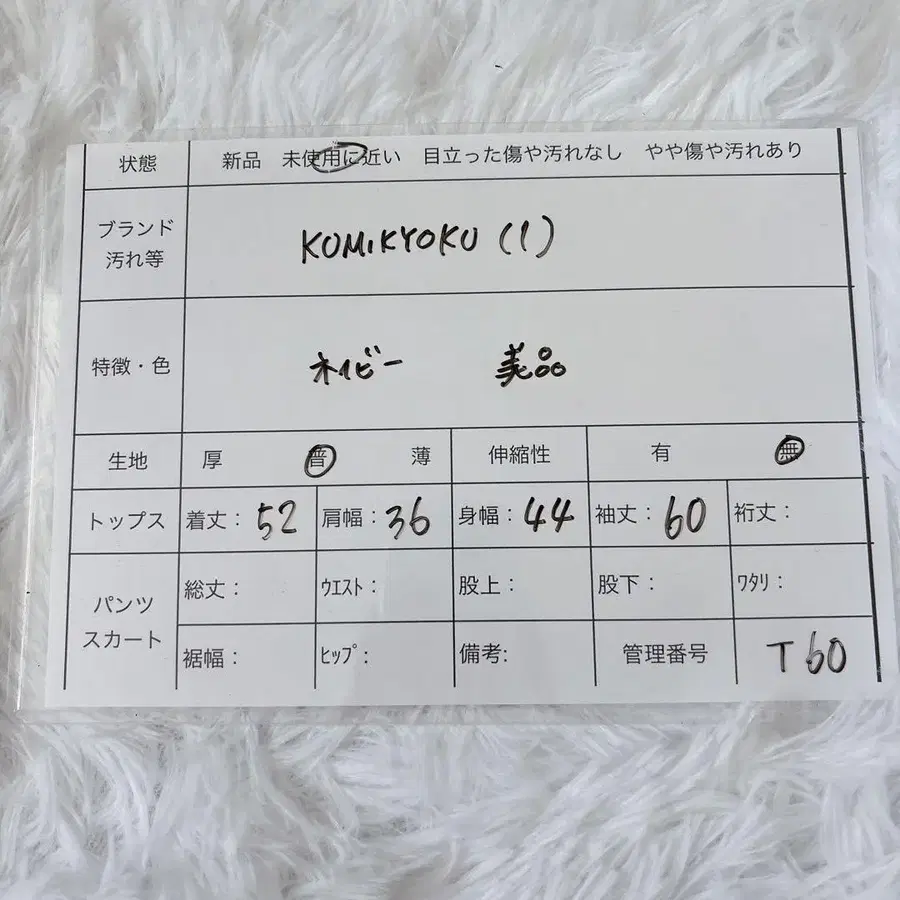 状態 新品 未使用に近い 目立った傷や汚れなし やや傷や汚れあり
ブランド
汚れ等
KUMIKYOKU (1)
特徴・色 ネイビー 美品
生地 厚 普 薄 伸縮性 有 無
トップス 着丈: 52 肩幅: 36 身幅: 44 袖丈: 60 裄丈:
パンツ
スカート
総丈: ウエスト: 股上: 股下: ワタリ:
裾幅: ヒップ: 備考: 管理番号 T60